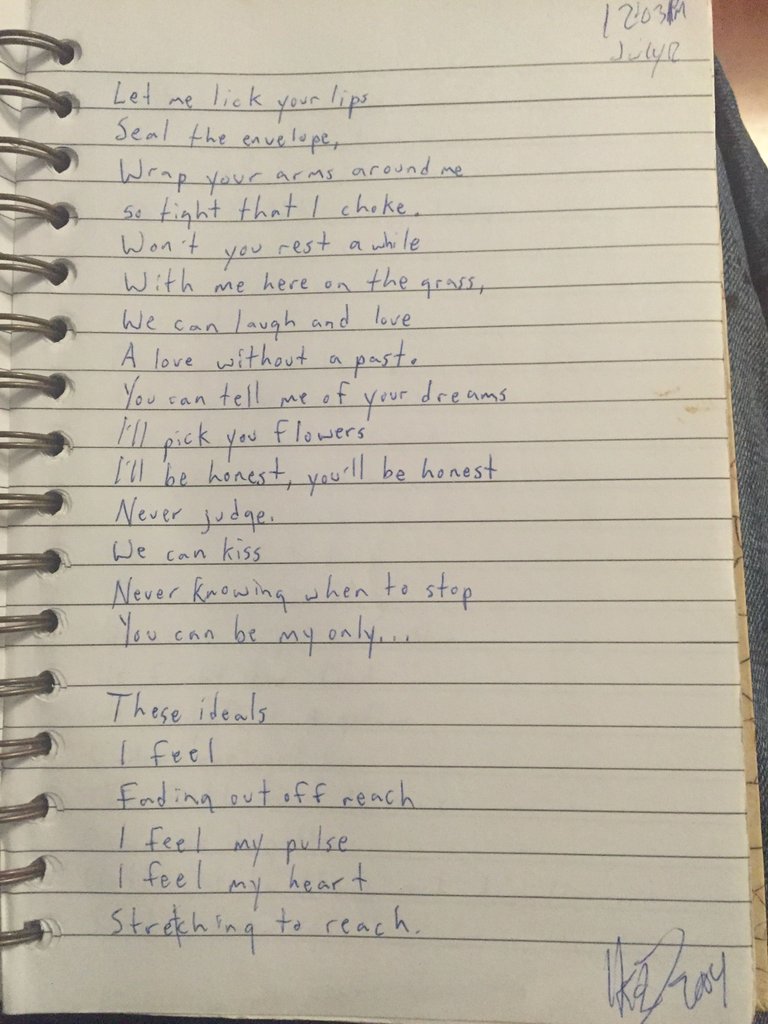 12:03PM
July
Let me lick your lips
Seal the envelope,
Wrap your arms around me
so tight that I choke.
Won't you rest a while
With me here on the grass,
We can laugh and love
A love without a past.
You can tell me of your dreams
I'll pick you flowers
I'll be honest, you'll be honest
Never judge.
We can kiss
Never knowing when to stop
You can be my only...
These ideals
I feel
Fading out off reach
I feel my pulse
I feel my heart
Stretching to reach.